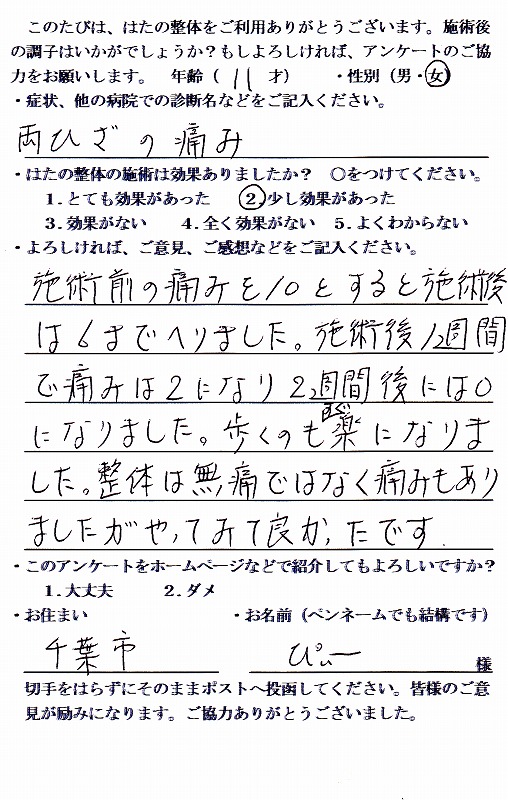 このたびは、はたの整体をご利用ありがとうございます。施術後
の調子はいかがでしょうか？もしよろしければ、アンケートのご協
力をお願いします。　年齢（ 11 才）　・性別（男・女）
・症状、他の病院での診断名などをご記入ください。
両ひざの痛み
・はたの整体の施術は効果ありましたか？　○をつけてください。
1．とても効果があった　②少し効果があった
3．効果がない　4．全く効果がない　5．よくわからない
・よろしければ、ご意見、ご感想などをご記入ください。
施術前の痛みを10とすると施術後
は6までへりました。施術後1週間
で痛みは2になり2週間後には0
になりました。歩くのも楽になりま
した。整体は無痛ではなく痛みもあり
ましたがやってみて良かったです.
・このアンケートをホームページなどで紹介してもよろしいですか？
1．大丈夫　2．ダメ
・お住まい　・お名前（ペンネームでも結構です）
千葉市　ぴぃー　様
切手をはらずにそのままポストへ投函してください。皆様のご意
見が励みになります。ご協力ありがとうございました。